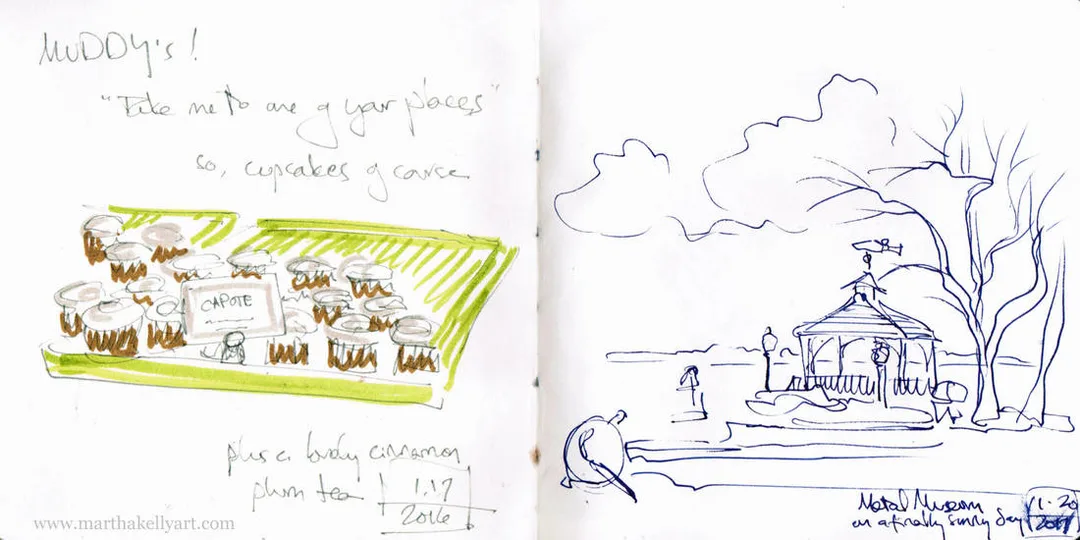 MUDDY's!
"Take me to one of your places"
so, cupcakes of course
CAPOTE
plus a lovely cinnamon
plum tea
1.17
2016
www.marthakellyart.com
Metal Museum
on a finally sunny day
1-20